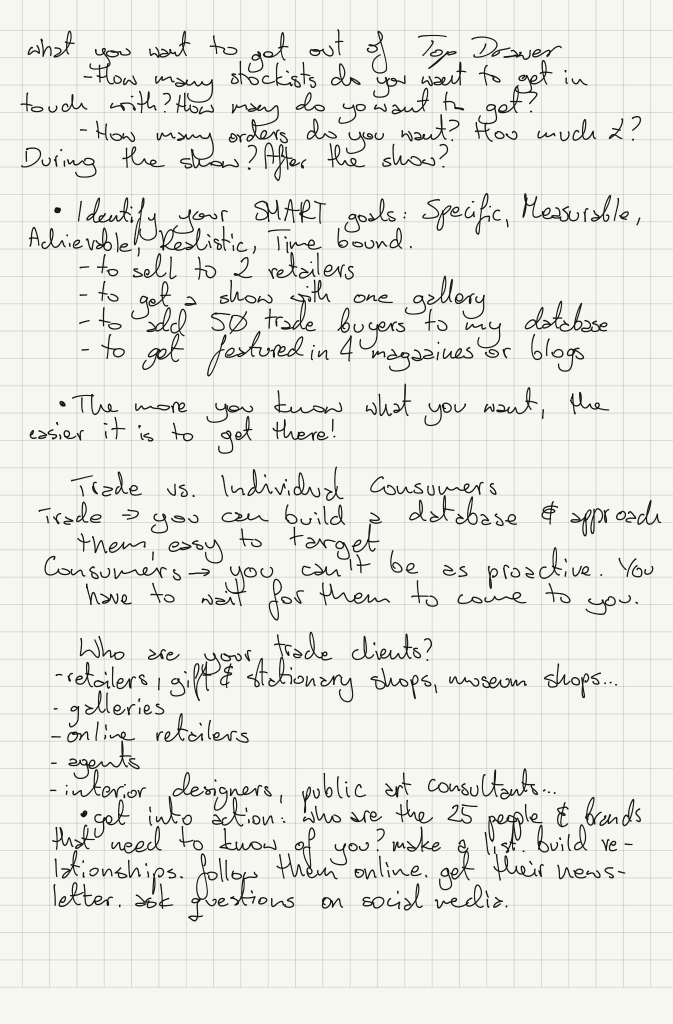 what you want to get out of Top Drawer
-How many stockists do you want to get in
touch with? How many do yo want to get?
- How many orders do you want? How much £?
During the show? After the show?
• Identify your SMART goals: Specific, Measurable,
Achievable, Realistic, Time bound.
- to sell to 2 retailers
- to get a show with one gallery
- to add 50 trade buyers to my database
- to get featured in 4 magazines or blogs
• The more you know what you want, the
easier it is to get there!
Trade vs. Individual Consumers
Trade → you can build a database & approach
them, easy to target
Consumers → you can't be as proactive. You
have to wait for them to come to you.
Who are your trade clients?
-retailers, gift & stationary shops, museum shops...
- galleries
- online retailers
- agents
- interior designers, public art consultants...
• get into action: who are the 25 people & brands
that need to know of you? make a list. build re-
lationships. follow them online. get their news-
letter. ask questions on social media.